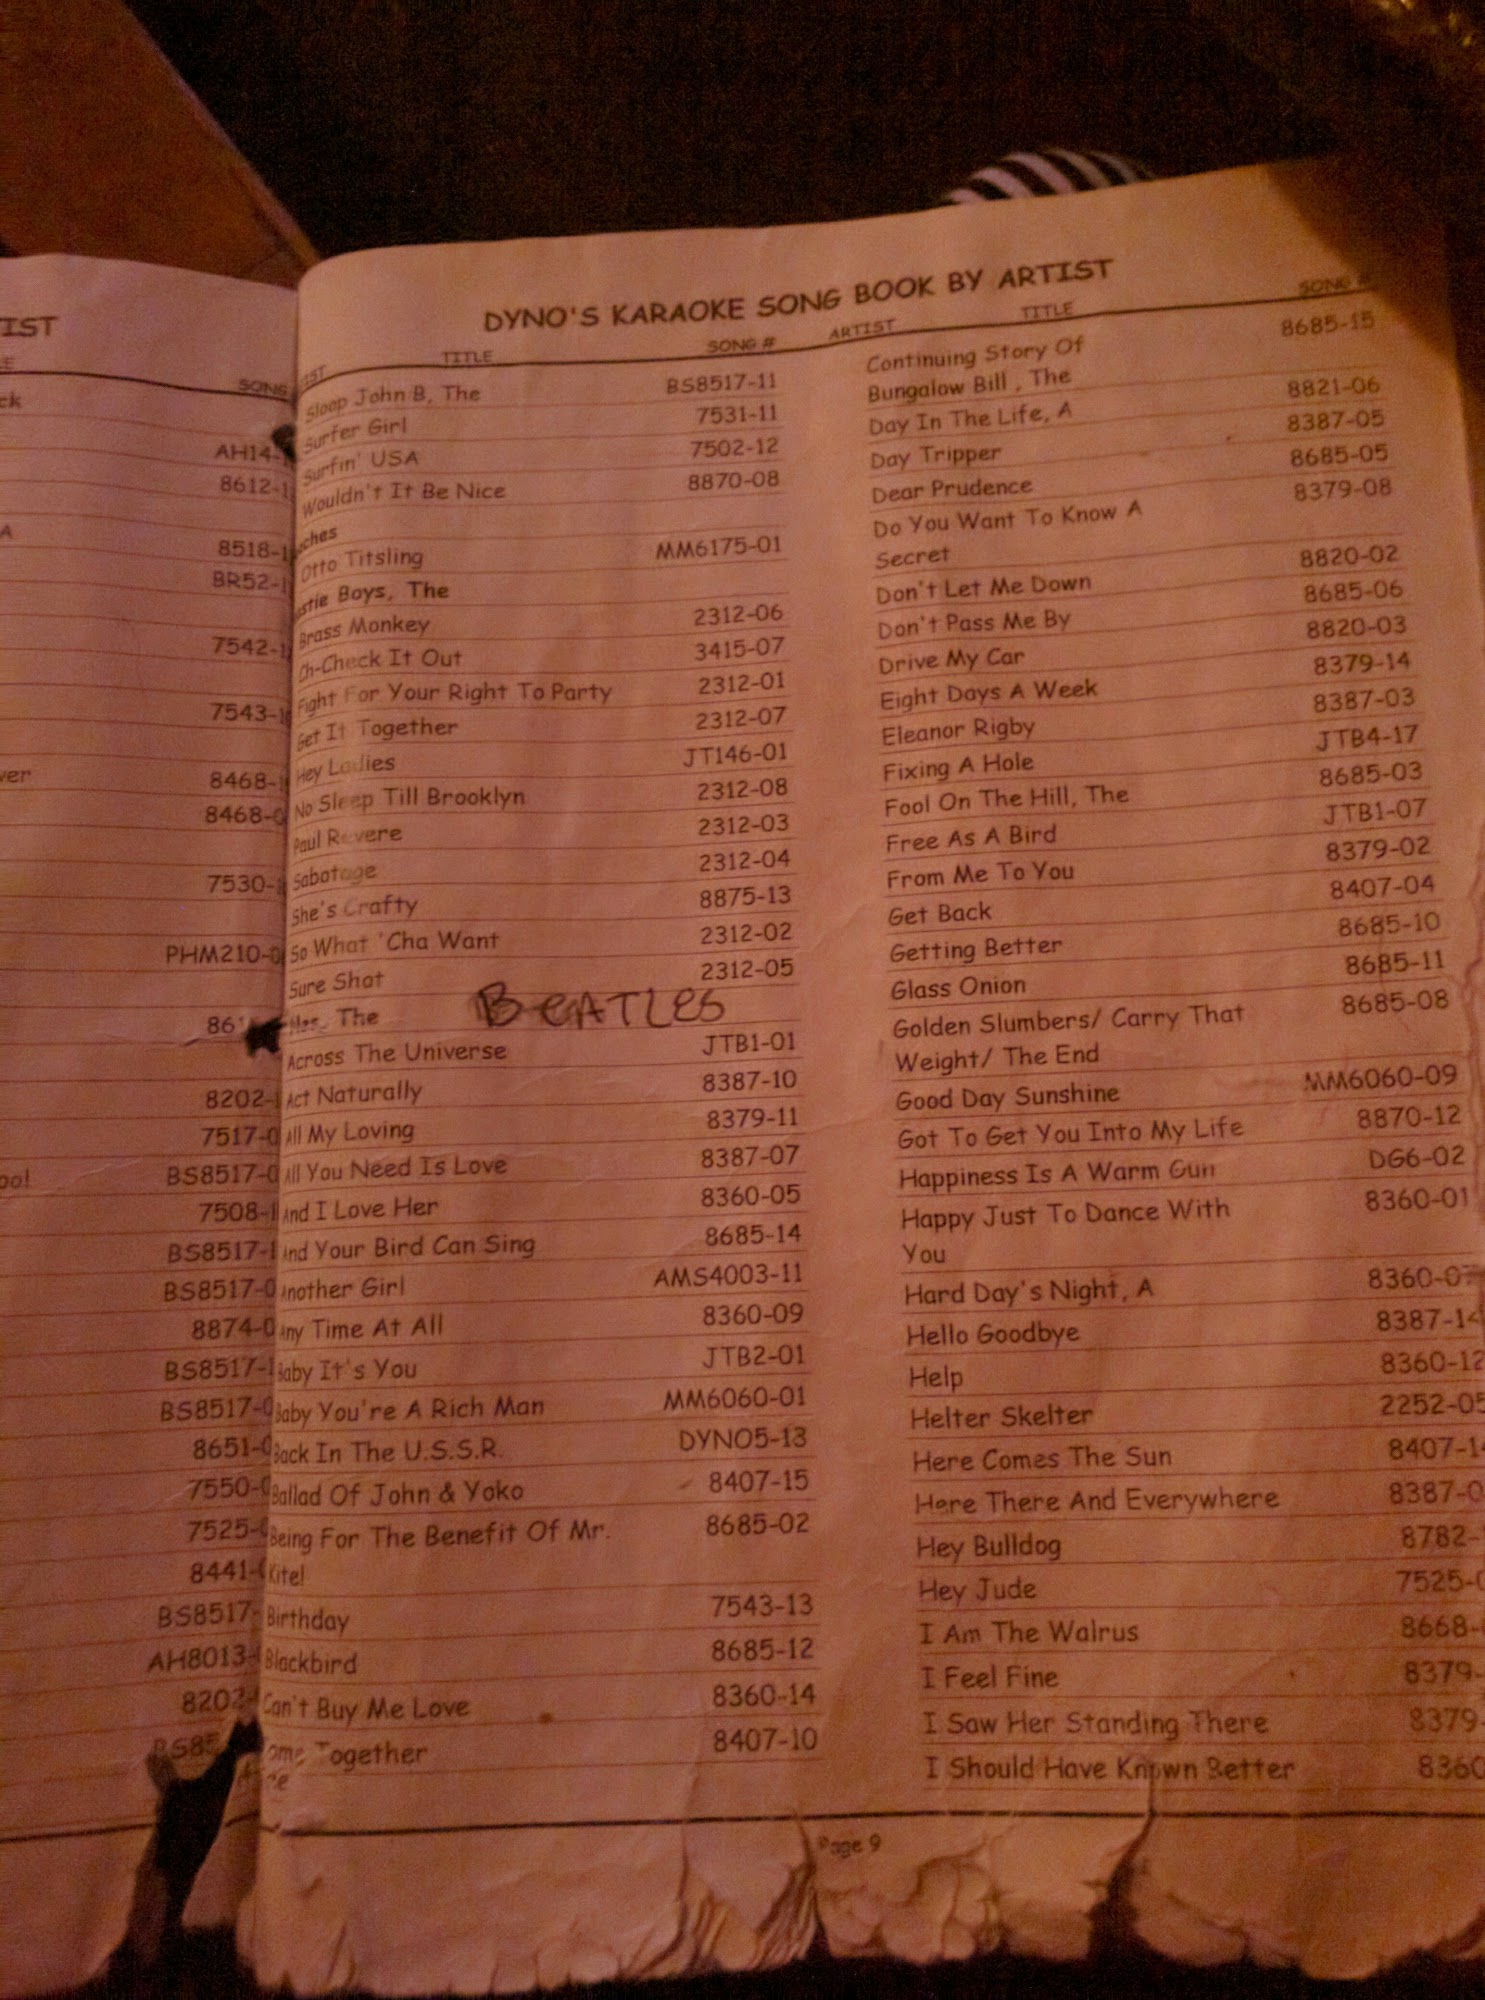 IST
E
SONG
ck
AH14-
8612-1
A
8518-1
BR52-1
7542-1
7543-1
ver
8468-1
8468-0
7530-
PHM210-0
86
8202-
7517-0
ool
BS8517-0
7508-1
BS8517-1
BS8517-0
8874-0
BS8517-1
BS8517-0
8651-0
7550-0
7525-0
8441-0
BS8517-
AH8013-
8202-
BS85
DYNO'S KARAOKE SONG BOOK BY ARTIST
IST TITLE SONG #
Sloop John B, The BS8517-11
Surfer Girl 7531-11
Surfin' USA 7502-12
Wouldn't It Be Nice 8870-08
aches
Otto Titsling MM6175-01
astie Boys, The
Brass Monkey 2312-06
Ch-Check It Out 3415-07
Fight For Your Right To Party 2312-01
Get It Together 2312-07
Hey Ladies JT146-01
No Sleep Till Brooklyn 2312-08
Paul Revere 2312-03
Sabotage 2312-04
She's Crafty 8875-13
So What 'Cha Want 2312-02
Sure Shot 2312-05
The BEATLES
Across The Universe JTB1-01
Act Naturally 8387-10
All My Loving 8379-11
All You Need Is Love 8387-07
And I Love Her 8360-05
And Your Bird Can Sing 8685-14
Another Girl AMS4003-11
Any Time At All 8360-09
Baby It's You JTB2-01
Baby You're A Rich Man MM6060-01
Back In The U.S.S.R. DYNO5-13
Ballad Of John & Yoko 8407-15
Being For The Benefit Of Mr. 8685-02
Kite!
Birthday 7543-13
Blackbird 8685-12
Can't Buy Me Love 8360-14
ome Together 8407-10
ARTIST TITLE SONG #
Continuing Story Of 8685-15
Bungalow Bill , The
Day In The Life, A 8821-06
Day Tripper 8387-05
Dear Prudence 8685-05
Do You Want To Know A 8379-08
Secret
Don't Let Me Down 8820-02
Don't Pass Me By 8685-06
Drive My Car 8820-03
Eight Days A Week 8379-14
Eleanor Rigby 8387-03
Fixing A Hole JTB4-17
Fool On The Hill, The 8685-03
Free As A Bird JTB1-07
From Me To You 8379-02
Get Back 8407-04
Getting Better 8685-10
Glass Onion 8685-11
Golden Slumbers/ Carry That 8685-08
Weight/ The End
Good Day Sunshine MM6060-09
Got To Get You Into My Life 8870-12
Happiness Is A Warm Gun DG6-02
Happy Just To Dance With 8360-01
You
Hard Day's Night, A 8360-07
Hello Goodbye 8387-14
Help 8360-12
Helter Skelter 2252-05
Here Comes The Sun 8407-1
Here There And Everywhere 8387-0
Hey Bulldog 8782-
Hey Jude 7525-0
I Am The Walrus 8668-
I Feel Fine 8379-
I Saw Her Standing There 8379-
I Should Have Known Better 8360
Page 9